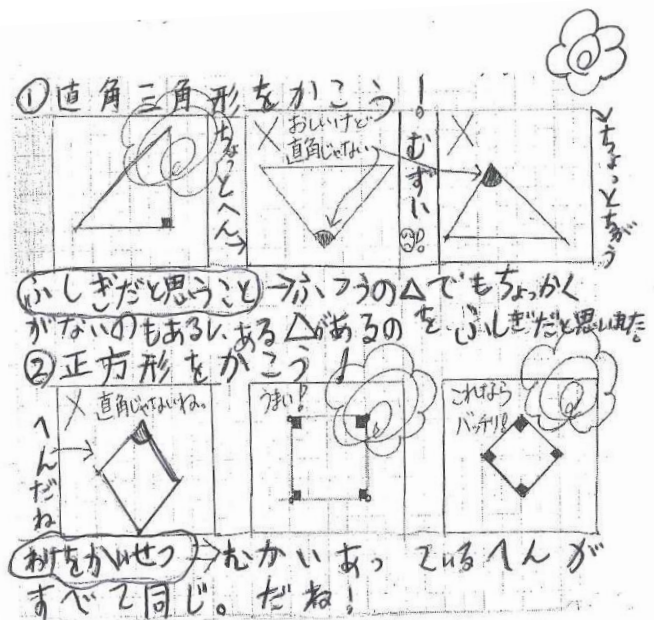 ①直角三角形をかこう!
ちょっとへん
おしいけど
直角じゃない
むずい
ちょっとちがう
ふしぎだと思うこと→ふつうの△でもちょっかく
がないのもあるし、ある△があるのを、ふしぎだと思いました。
②正方形をかこう!
へんだね
直角じゃないね。
うまい!
これなら
バッチリ!
わけをかいせつ→むかいあっているへんが
すべて同じ。だね!